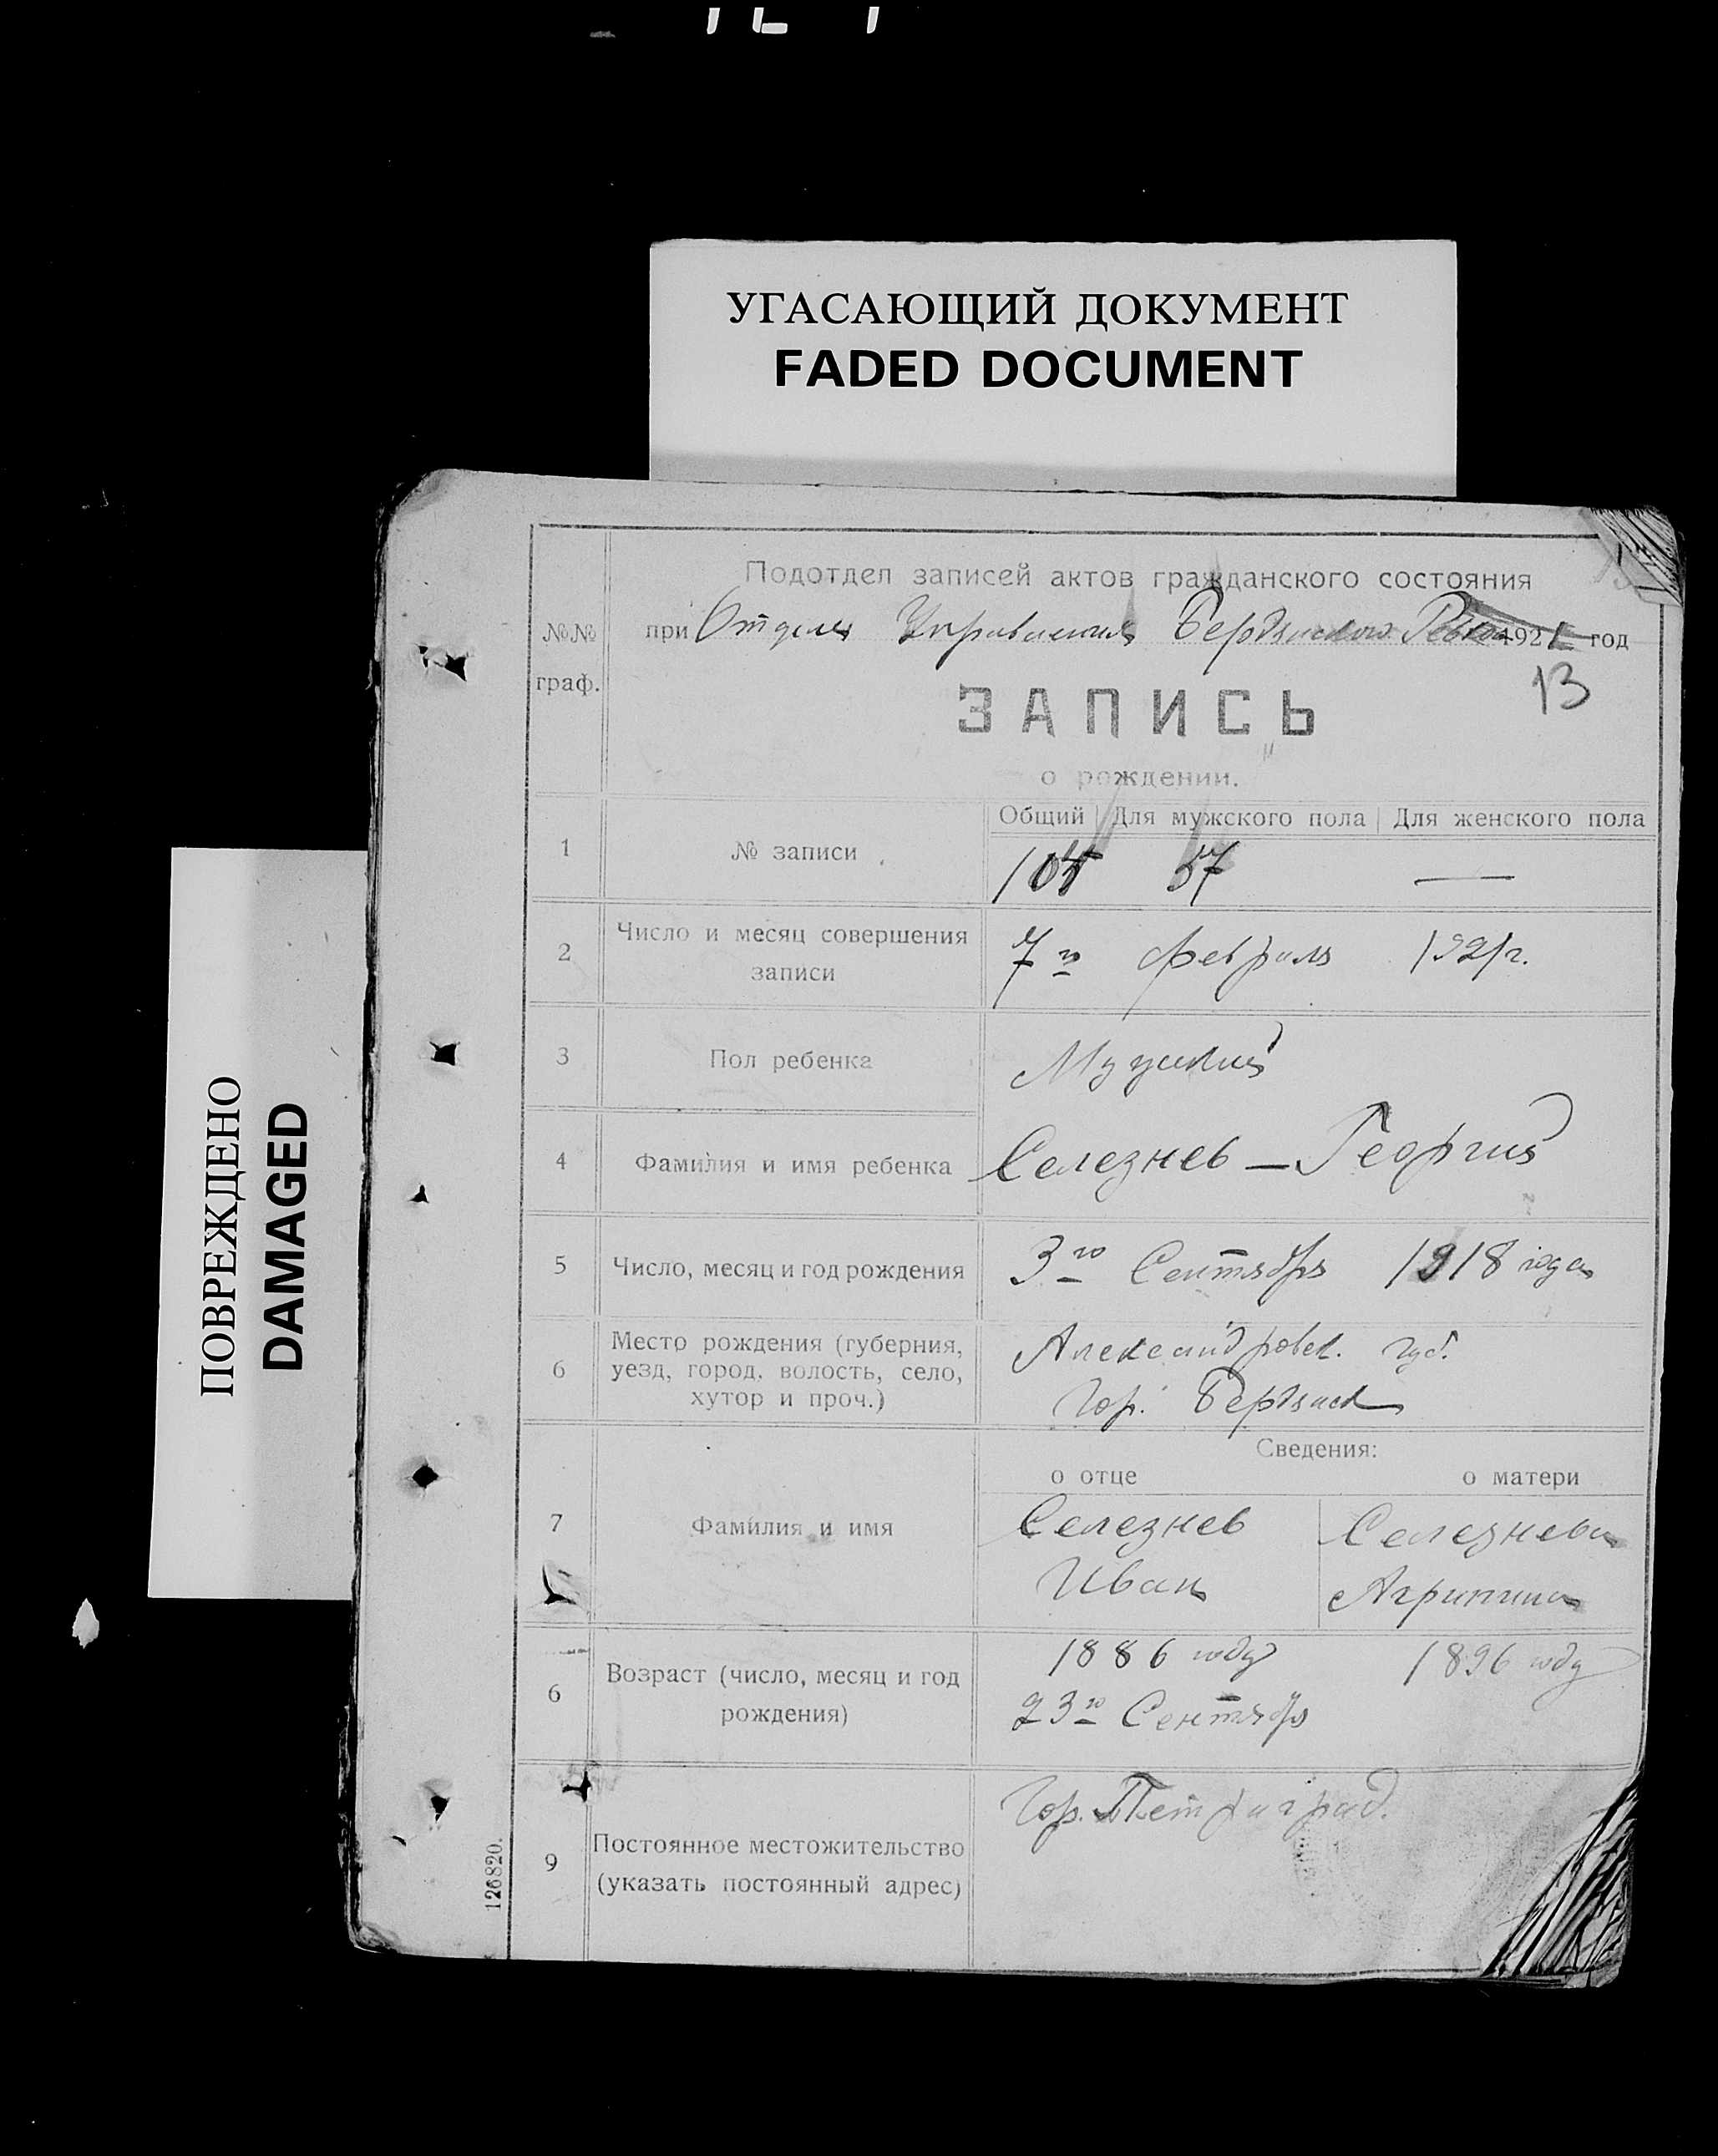 УГАСАЮЩИЙ ДОКУМЕНТ
FADED DOCUMENT
ПОВРЕЖДЕНО
DAMAGED
Подотдел записей актов гражданского состояния
№№ граф.
при Отделе Управления Бердянского 1921 год
13
ЗАПИСЬ
о рождении.
Общий Для мужского пола Для женского пола
1 № записи 105 57 —
2 Число и месяц совершения записи 7го февраля 1921г.
3 Пол ребенка Мужский
4 Фамилия и имя ребенка Селезнев — Георгий
5 Число, месяц и год рождения 3го Сентября 1918 года
6 Место рождения (губерния, Александровск. губ.
уезд, город, волость, село,
хутор и проч.) Гор. Бердянск
Сведения:
о отце о матери
7 Фамилия и имя Селезнев Селезнева
Иван Агрипина
6 Возраст (число, месяц и год 1886 году 1896 году
рождения) 23го Сентября
Гор. Петроград.
9 Постоянное местожительство
(указать постоянный адрес)
126820.